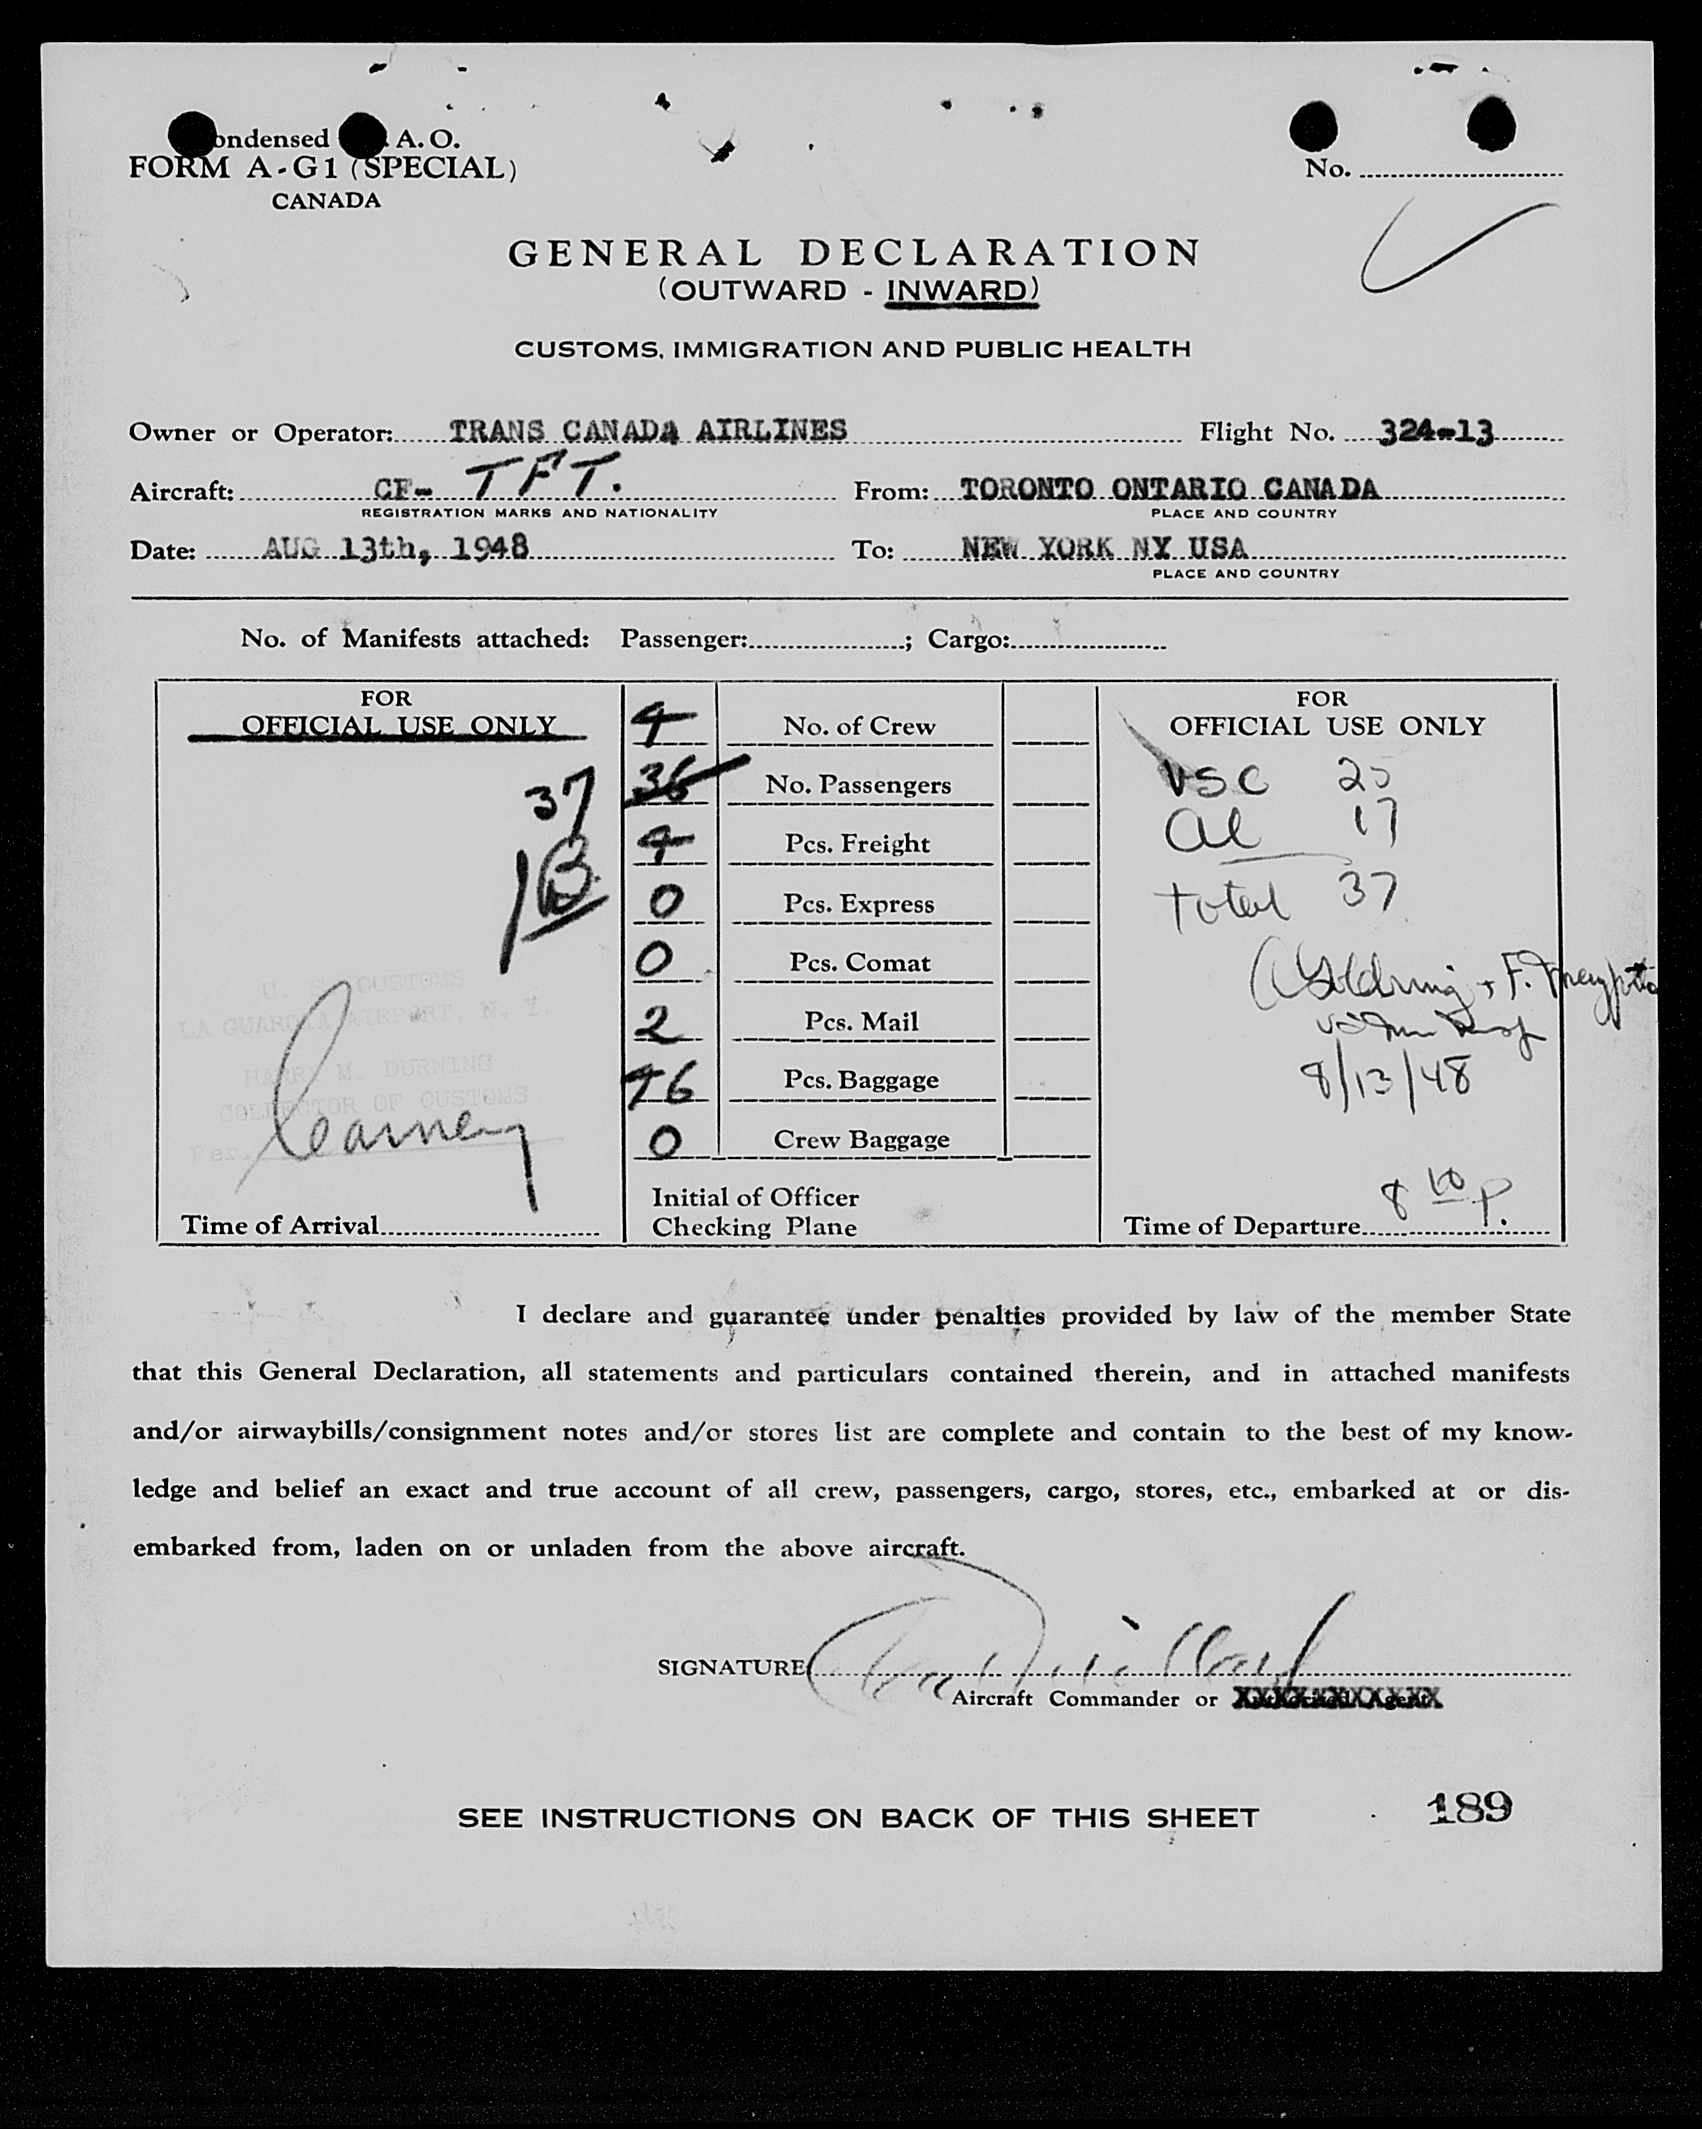 ondensed A. O.
FORM A-G1 (SPECIAL)
CANADA
No.
GENERAL DECLARATION
(OUTWARD - INWARD)
CUSTOMS, IMMIGRATION AND PUBLIC HEALTH
Owner or Operator: TRANS CANADA AIRLINES Flight No. 324-13
Aircraft: CF- TFT. From: TORONTO ONTARIO CANADA
REGISTRATION MARKS AND NATIONALITY PLACE AND COUNTRY
Date: AUG 13th, 1948 To: NEW YORK NY USA
PLACE AND COUNTRY
No. of Manifests attached: Passenger: ; Cargo:
FOR
OFFICIAL USE ONLY
37
U. S. CUSTOMS
LA GUARDIA AIRPORT, N. Y.
HARRY M. DURNING
COLLECTOR OF CUSTOMS
Per.
Time of Arrival
4 No. of Crew
36 No. Passengers
4 Pcs. Freight
0 Pcs. Express
0 Pcs. Comat
2 Pcs. Mail
46 Pcs. Baggage
0 Crew Baggage
Initial of Officer
Checking Plane
FOR
OFFICIAL USE ONLY
USC 20
al 17
total 37
8/13/48
8 10 p.
Time of Departure
I declare and guarantee under penalties provided by law of the member State
that this General Declaration, all statements and particulars contained therein, and in attached manifests
and/or airwaybills/consignment notes and/or stores list are complete and contain to the best of my know-
ledge and belief an exact and true account of all crew, passengers, cargo, stores, etc., embarked at or dis-
embarked from, laden on or unladen from the above aircraft.
SIGNATURE
Aircraft Commander or
SEE INSTRUCTIONS ON BACK OF THIS SHEET
189